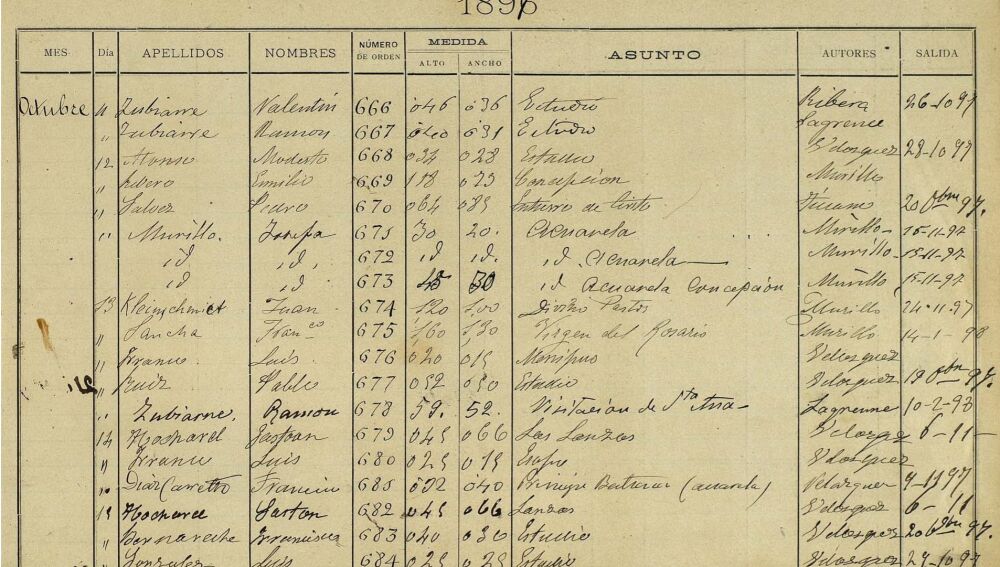 189
MES. Día APELLIDOS NOMBRES NÚMERO DE ORDEN MEDIDA ALTO ANCHO ASUNTO AUTORES SALIDA
Octubre 11 Zubiarre Valentín 666 046 036 Estudio Ribera 26-10-97
" Zubiarre Ramon 667 040 031 Estudio Lagrenee
12 Alonso Modesto 668 034 028 Estudio Velasquez 28-10-97
" Ribero Emilio 669 118 073 Concepcion Murillo
" Galvez Pedro 670 064 Entierro de Cristo 97.
" Murillo. Josefa 671 30 20. Acuarela Murillo 15-11-97
id id, 672 id id. id. Acuarela Murillo 15-11-97
id id 673 45 30 id Acuarela Concepcion Murillo 15-11-97
13 Kleinschmict Juan 674 120 100 Murillo 24-11-97
" Sancha Franco 675 160 130 Virgen del Rosario Murillo 14-1-98
" Franco Luis 676 020 015 Menipo Velazquez
" Ruiz Pablo 677 052 050 Estudio Velasquez 97.
" Zubiarre. Ramon 678 59. 52. Visitacion de Sta Ana Lagrenee 10-2-98
14 Hocharel Gaston 679 045 066 Las Lanzas Velasquez 6-11-
" Franco Luis 680 025 015 Esopo Velasquez
" Diaz Carreño 681 032 040 Principe Baltasar (acuarela) Velazquez 9-11-97
15 Hocharel Gaston 682 045 066 Lanzas Velasquez 6-11
" Francisca 683 040 030 Estudio Velasquez 97.
" Gonzalez Luis 684 025 025 Estudio Velasquez 27-10-97